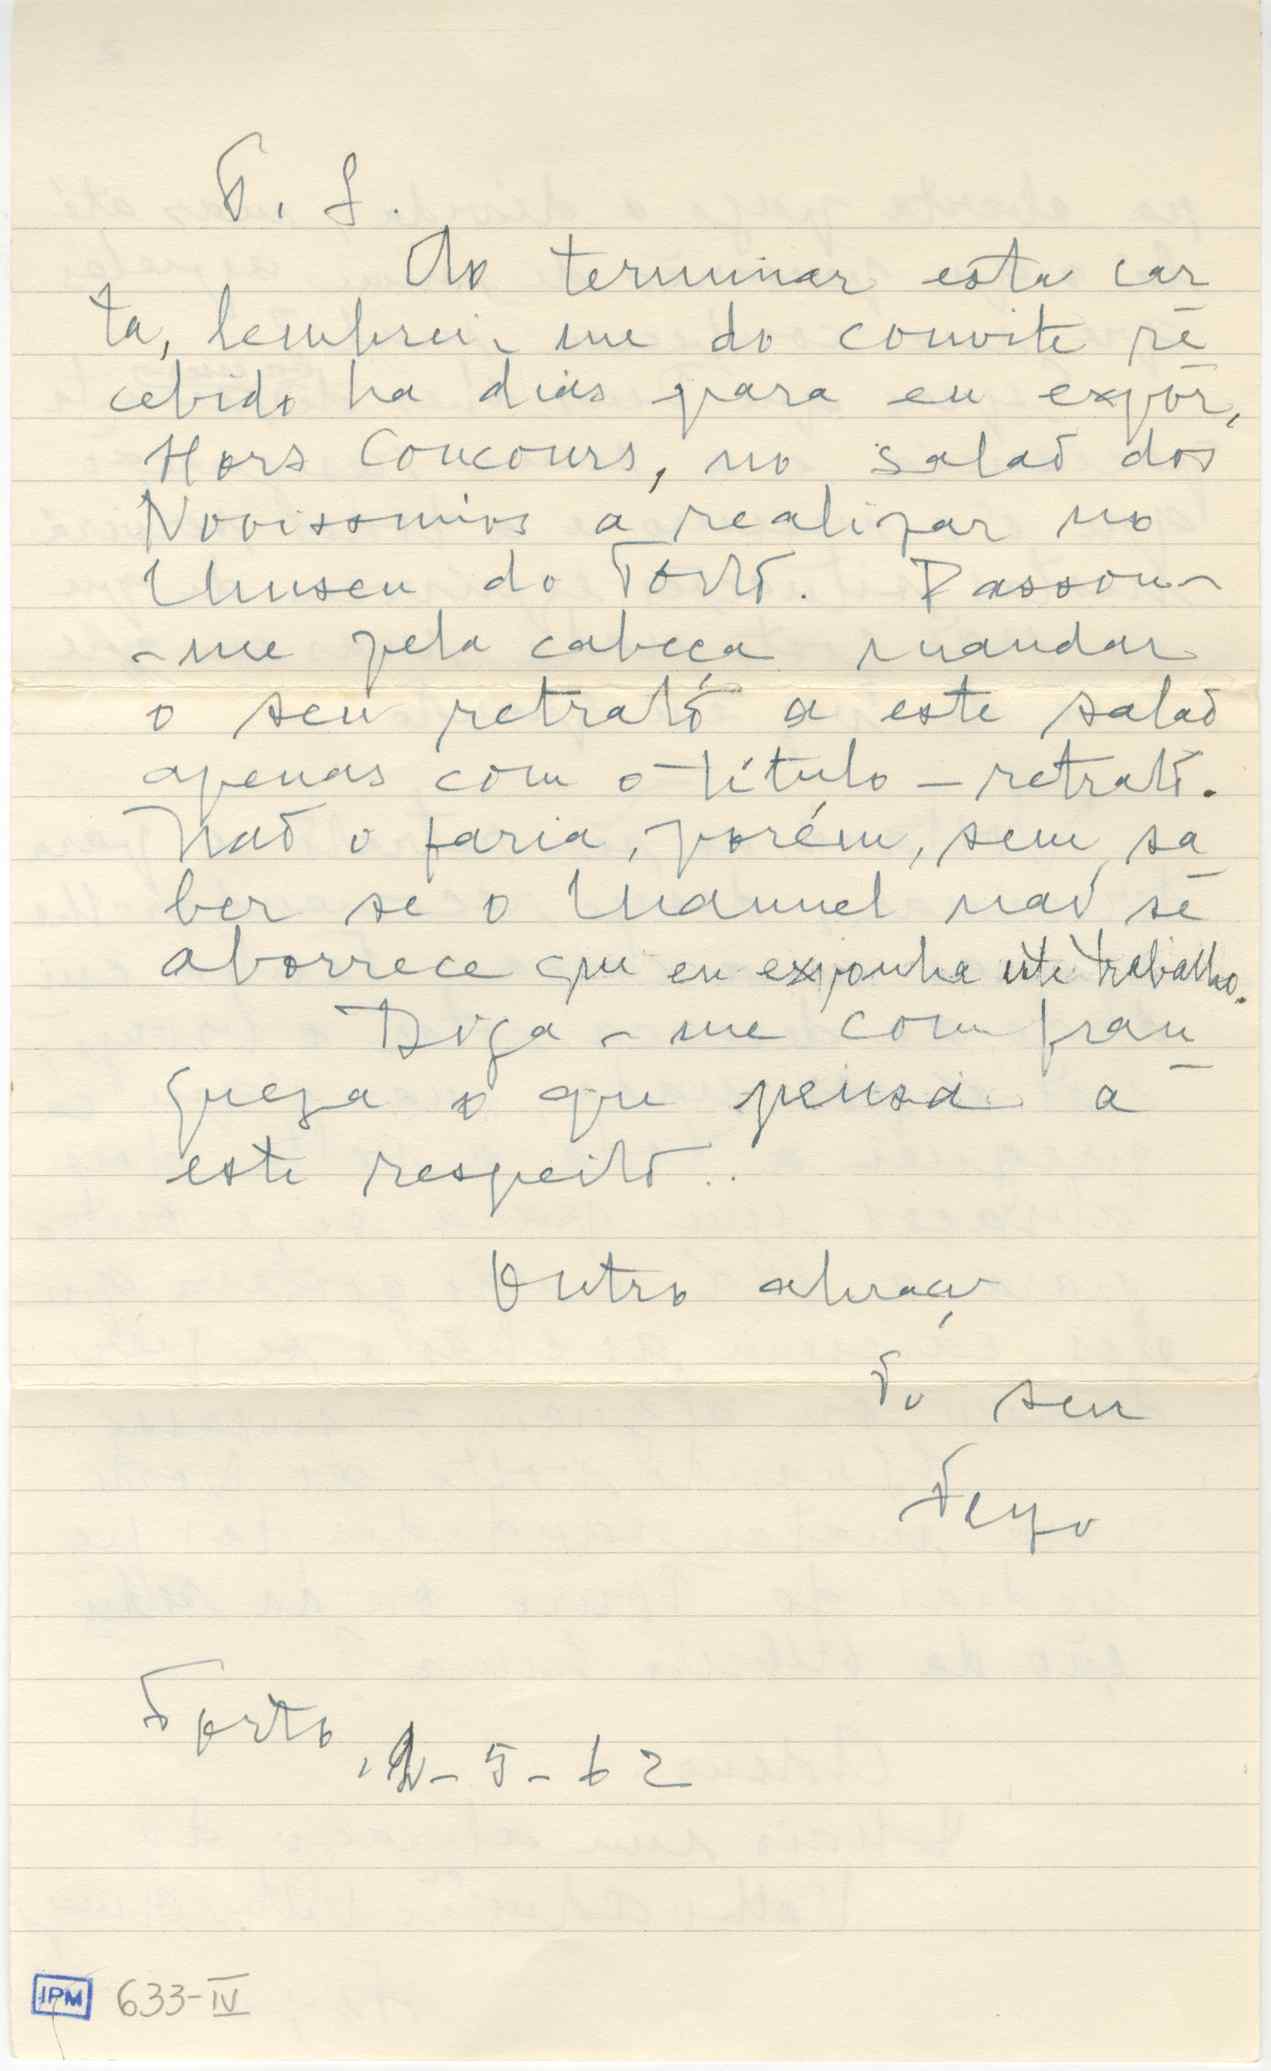 P. S.
Ao terminar esta car
ta, lembrei-me do convite re
cebido ha dias para eu expôr,
Hors Concours, no salaõ dos
Novissimos a realizar no
Museu do Porto. Passou-
-me pela cabeça mandar
o seu retrato a este salaõ
apenas com o título - retrato.
Naõ o faria, porém, sem sa
ber se o Manuel naõ se
aborrece que eu exponha este trabalho.
Diga-me com fran
queza o que pensa a
este respeito..
Outro abraço
Do seu
Porto, 2-5-62
IPM 633-IV